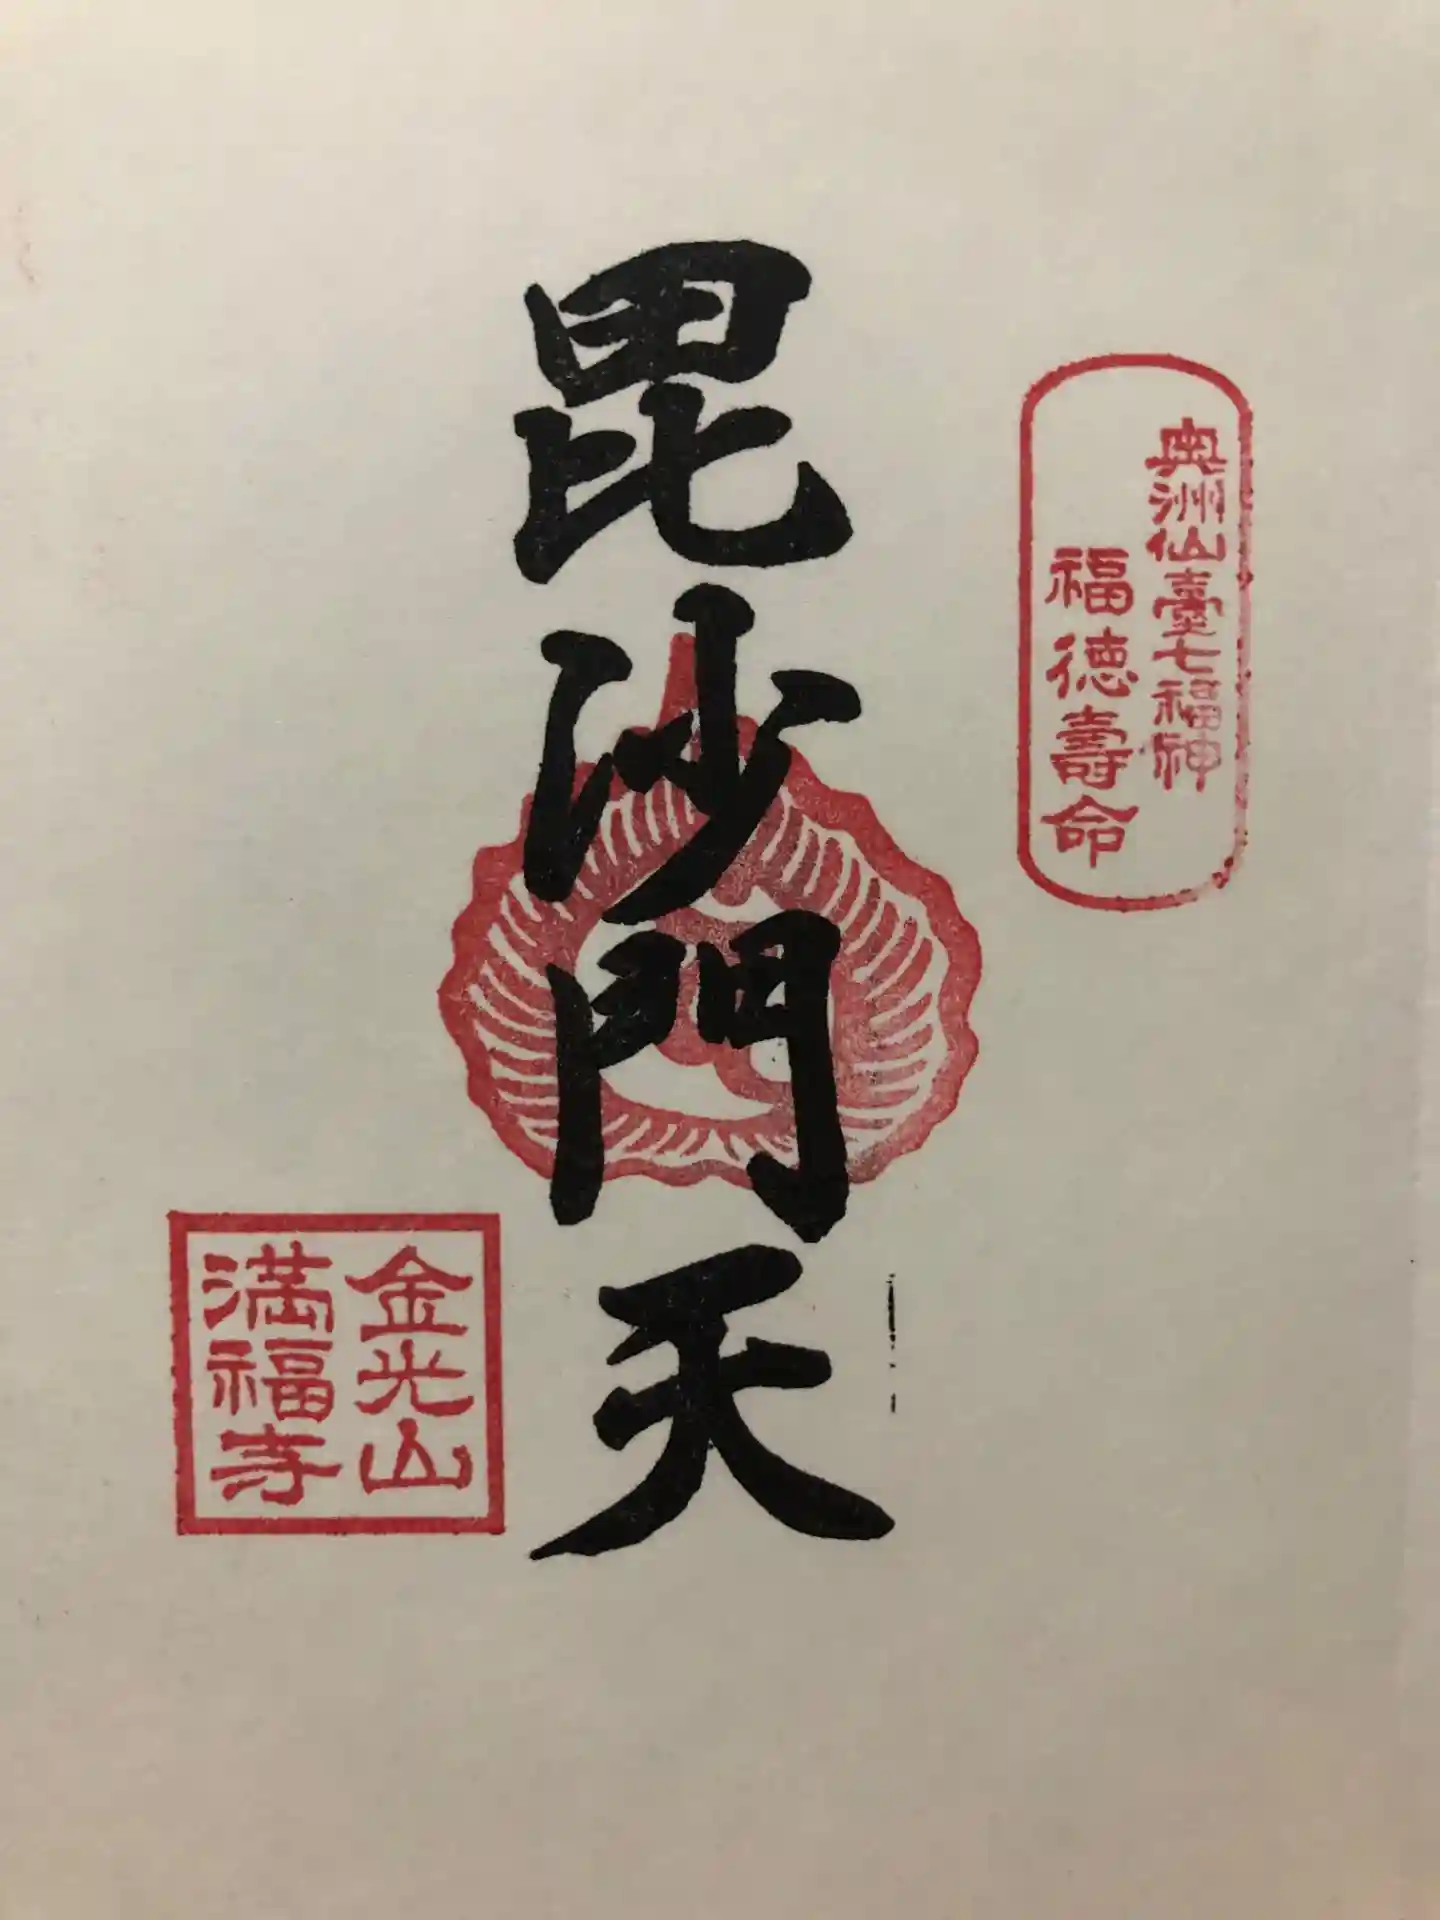 奥洲仙臺七福神
福徳壽命
毘沙門天
金光山
満福寺